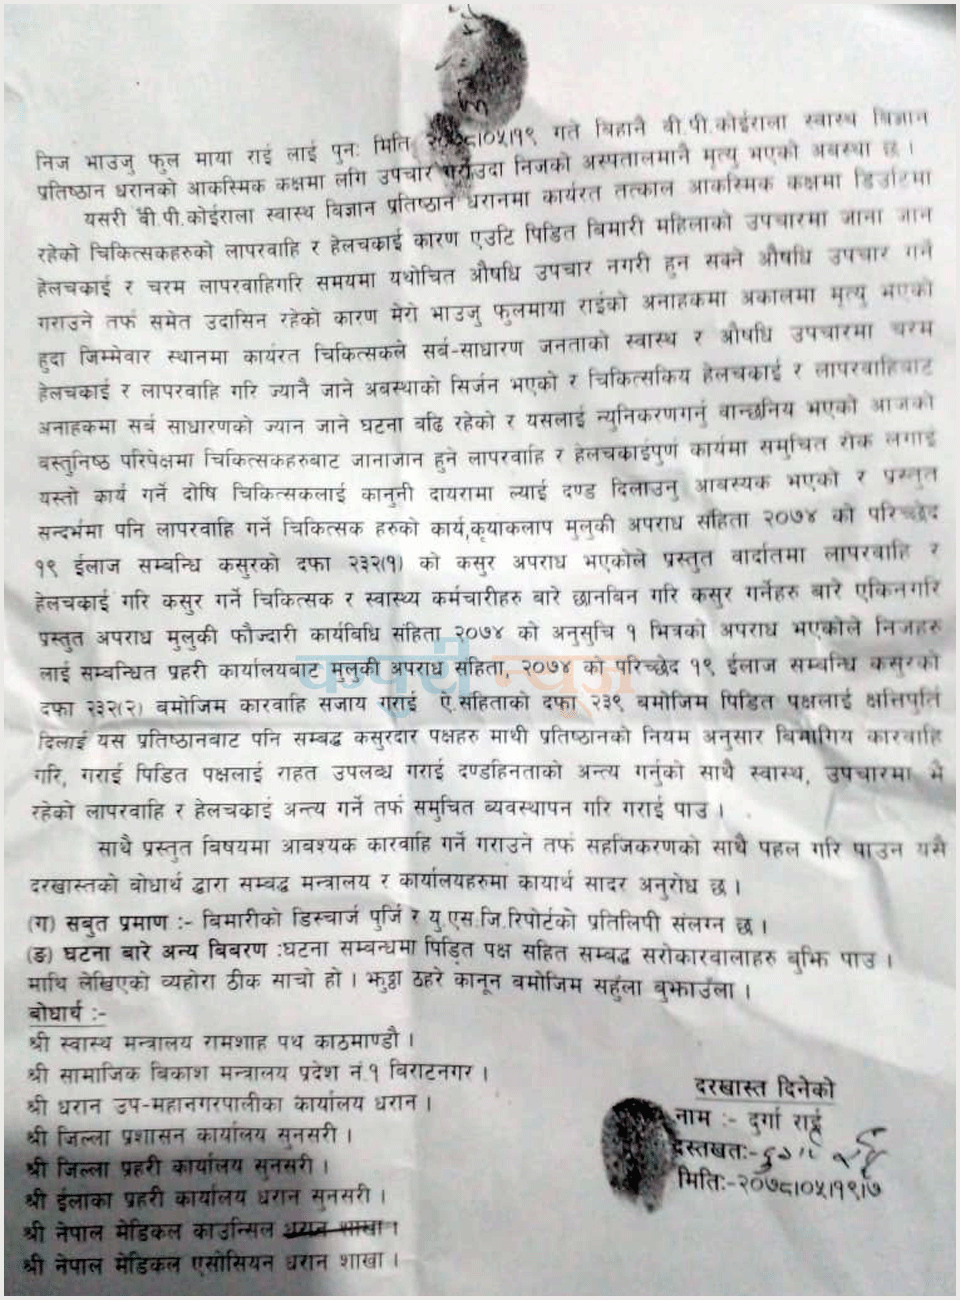 निज भाउजु फुल माया राई लाई पुनः मिति २०७८।०५।१९ गते बिहानै बी.पी.कोईराला स्वास्थ बिज्ञान
प्रतिष्ठान धरानको आकस्मिक कक्षमा लगि उपचार गराँउदा निजको अस्पतालमानै मृत्यु भएको अवस्था छ ।
यसरी बी.पी.कोईराला स्वास्थ बिज्ञान प्रतिष्ठान धरानमा कार्यरत तत्काल आकस्मिक कक्षमा डिउटिमा
रहेको चिकित्सकहरुको लापरवाहि र हेलचकाई कारण एउटि पिडित बिमारी महिलाको उपचारमा जाना जान
हेलचकाई र चरम लापरवाहिगरि समयमा यथोचित औषधि उपचार नगरी हुन सक्ने औषधि उपचार गर्ने
गराउने तर्फ समेत उदासिन रहेको कारण मेरो भाउजु फुलमाया राईको अनाहकमा अकालमा मृत्यु भएको
हुदा जिम्मेवार स्थानमा कार्यरत चिकित्सकले सर्ब-साधारण जनताको स्वास्थ र औषधि उपचारमा चरम
हेलचकाई र लापरवाहि गरि ज्यानै जाने अबस्थाको सिर्जन भएको र चिकित्सकिय हेलचकाई र लापरवाहिबाट
अनाहकमा सर्ब साधारणको ज्यान जाने घटना बढि रहेको र यसलाई न्युनिकरणगर्नु वान्छनिय भएको आजको
बस्तुनिष्ठ परिपेक्षमा चिकित्सकहरुबाट जानाजान हुने लापरवाहि र हेलचकाईपुर्ण कार्यमा समुचित रोक लगाई
यस्तो कार्य गर्ने दोषि चिकित्सकलाई कानुनी दायरामा ल्याई दण्ड दिलाउनु आबस्यक भएको र प्रस्तुत
सन्दर्भमा पनि लापरवाहि गर्ने चिकित्सक हरुको कार्य,कृयाकलाप मुलुकी अपराध संहिता २०७४ को परिच्छेद
१९ ईलाज सम्बन्धि कसुरको दफा २३२(१) को कसुर अपराध भएकोले प्रस्तुत वार्दातमा लापरवाहि र
हेलचकाई गरि कसुर गर्ने चिकित्सक र स्वास्थ्य कर्मचारीहरु बारे छानबिन गरि कसुर गर्नेहरु बारे एकिनगरि
प्रस्तुत अपराध मुलुकी फौज्दारी कार्यबिधि संहिता २०७४ को अनुसुचि १ भित्रको अपराध भएकोले निजहरु
लाई सम्बन्धित प्रहरी कार्यालयबाट मुलुकी अपराध संहिता, २०७४ को परिच्छेद १९ ईलाज सम्बन्धि कसुरको
कपुरी न्यूज
दफा २३२(२) बमोजिम कारवाहि सजाय गराई ऐ.संहिताको दफा २३९ बमोजिम पिडित पक्षलाई क्षत्तिपुर्ति
दिलाई यस प्रतिष्ठानबाट पनि सम्बद्ध कसुरदार पक्षहरु माथी प्रतिष्ठानको नियम अनुसार बिभागिय कारवाहि
गरि, गराई पिडित पक्षलाई राहत उपलब्ध गराई दण्डहिनताको अन्त्य गर्नुको साथै स्वास्थ, उपचारमा भै
रहेको लापरवाहि र हेलचकाई अन्त्य गर्ने तर्फ समुचित ब्यवस्थापन गरि गराई पाउ ।
साथै प्रस्तुत बिषयमा आबश्यक कारवाहि गर्ने गराउने तर्फ सहजिकरणको साथै पहल गरि पाउन यसै
दरखास्तको बोधार्थ द्वारा सम्बद्ध मन्त्रालय र कार्यालयहरुमा कायार्थ सादर अनुरोध छ ।
(ग) सबुत प्रमाण :- बिमारीको डिस्चार्ज पुर्जि र यु.एस.जि.रिपोर्टको प्रतिलिपी संलग्न छ ।
(ङ) घटना बारे अन्य बिबरण :घटना सम्बन्धमा पिडित पक्ष सहित सम्बद्ध सरोकारवालाहरु बुझि पाउ ।
माथि लेखिएको व्यहोरा ठीक साचो हो । झुठ्ठा ठहरे कानून बमोजिम सहुँला बुझाउँला ।
बोधार्थ :-
श्री स्वास्थ मन्त्रालय रामशाह पथ काठमाण्डौ ।
श्री सामाजिक बिकाश मन्त्रालय प्रदेश नं.१ बिराटनगर ।
श्री धरान उप-महानगरपालीका कार्यालय धरान ।
श्री जिल्ला प्रशासन कार्यालय सुनसरी ।
श्री जिल्ला प्रहरी कार्यालय सुनसरी ।
श्री ईलाका प्रहरी कार्यालय धरान सुनसरी ।
श्री नेपाल मेडिकल काउन्सिल धरान शाखा ।
श्री नेपाल मेडिकल एसोसियन धरान शाखा ।
दरखास्त दिनेको
नाम :- दुर्गा राई
दस्तखतः- दुर्गा राई
मितिः-२०७८।०५।१९।७